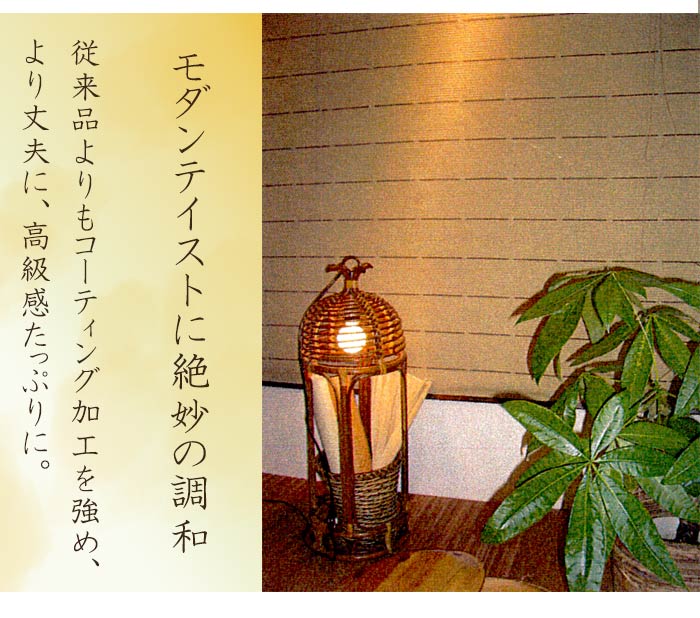 モダンテイストに絶妙の調和
従来品よりもコーティング加工を強め、
より丈夫に、高級感たっぷりに。